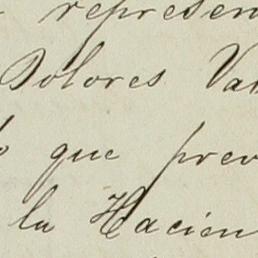 represen
Dolores Va
que prev
la Hacien